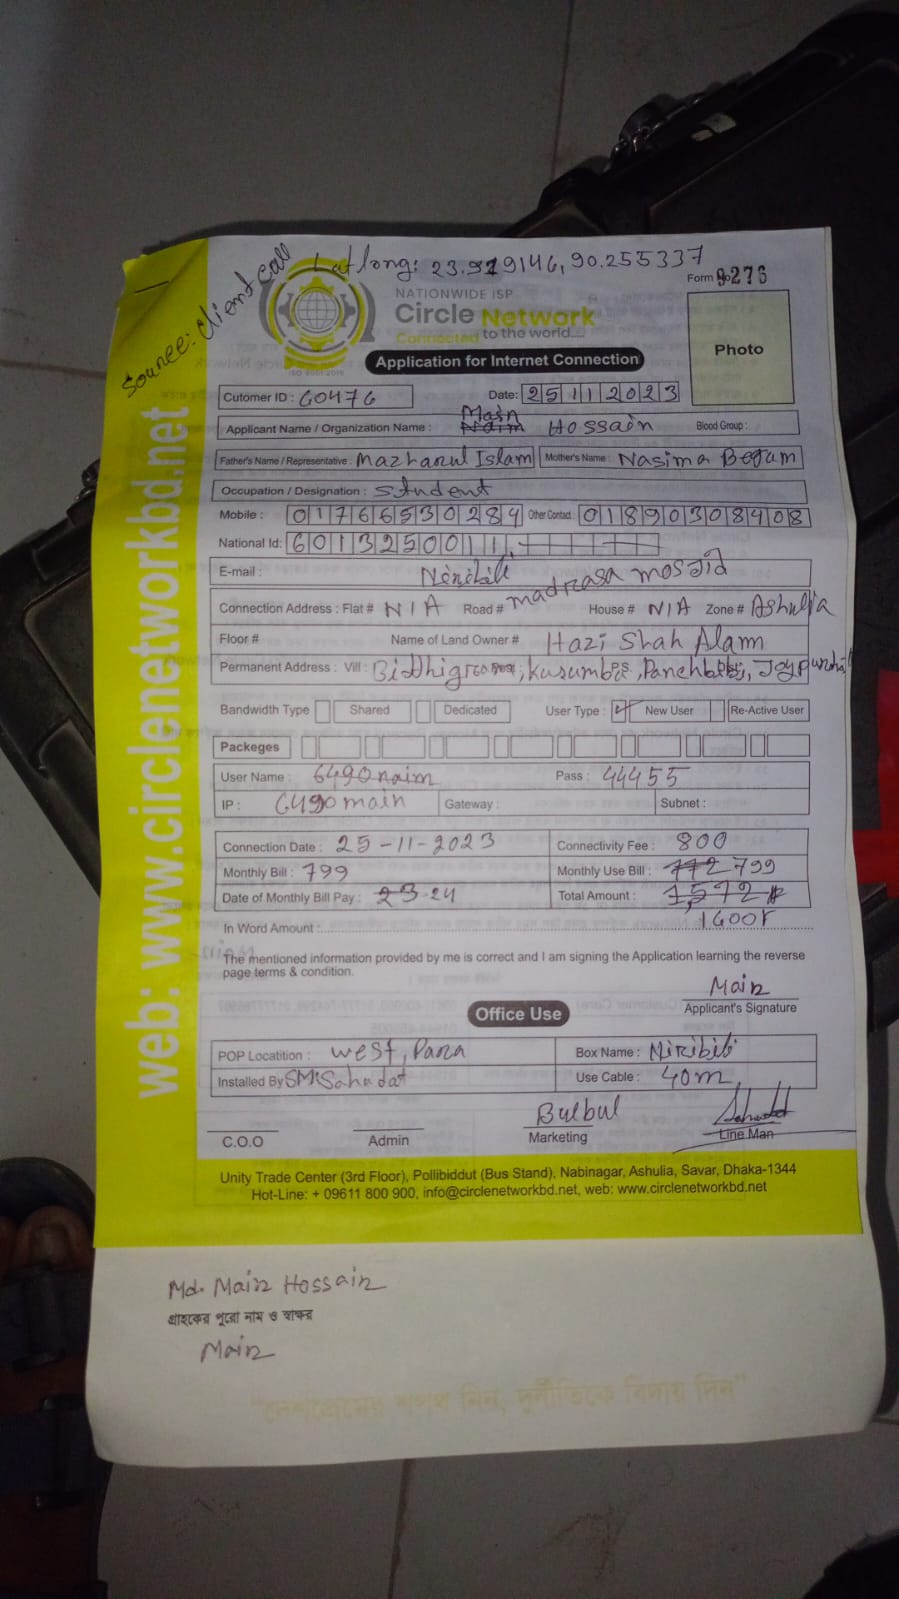 Source: Client Call
Lat long: 23.919146, 90.255337
Form No 9276
NATIONWIDE ISP
Circle Network
Connected to the world....
ISO 9001:2015
Application for Internet Connection
Photo
Cutomer ID : 60476
Date: 25 11 2023
Applicant Name / Organization Name : Naim Main Hossain Blood Group :
Father's Name / Representative : Mazharul Islam Mother's Name : Nasima Begum
Occupation / Designation : Student
Mobile : 01766530284 Other Contact 01890308908
National Id: 6013250011
E-mail :
Niribili madrasa mosjid
Connection Address : Flat # N/A Road # House # N/A Zone # Ashulia
Floor # Name of Land Owner # Hazi Shah Alam
Permanent Address : Vill : Kusumba, P.S. Panchbibi, Joypurhat
Bandwidth Type Shared Dedicated User Type : New User Re-Active User
Packeges
User Name : 6490naim Pass : 44455
IP : 6490main Gateway : Subnet :
Connection Date : 25-11-2023 Connectivity Fee : 800
Monthly Bill : 799 Monthly Use Bill : 772 799
Date of Monthly Bill Pay : 23-24 Total Amount : 1,572
In Word Amount : 1600
The mentioned information provided by me is correct and I am signing the Application learning the reverse
page terms & condition.
Main
Applicant's Signature
Office Use
POP Locatition : west, Para Box Name : Niribili
Installed By SM Sahadat Use Cable : 40m
C.O.O Admin Bulbul Marketing Line Man
Unity Trade Center (3rd Floor), Pollibiddut (Bus Stand), Nabinagar, Ashulia, Savar, Dhaka-1344
Hot-Line: + 09611 800 900, info@circlenetworkbd.net, web: www.circlenetworkbd.net
web: www.circlenetworkbd.net
Md. Main Hossain
গ্রাহকের পুরো নাম ও স্বাক্ষর
Main
"দেশপ্রেমের শপথ নিন, দুর্নীতিকে বিদায় দিন"